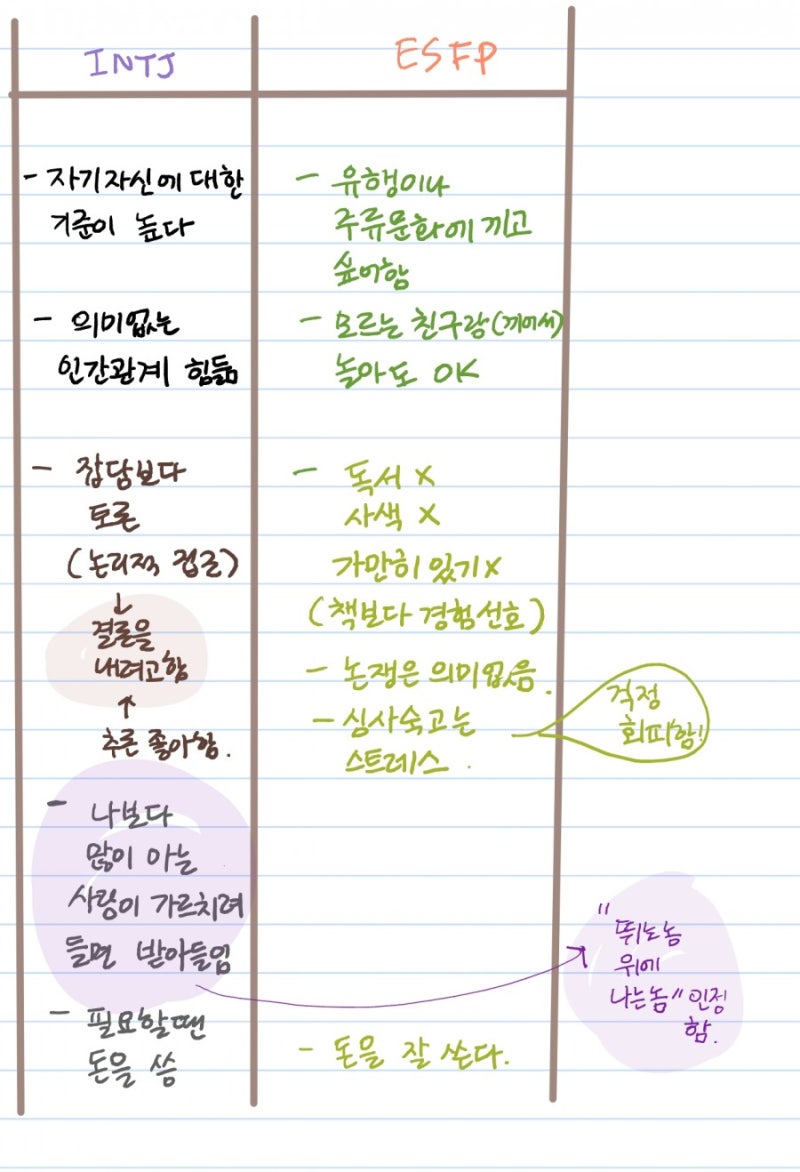 INTJ
ESFP
- 자기자신에 대한
기준이 높다
- 의미없는
인간관계 힘듦
- 잡담보다
토론
(논리적 접근)
↓
결론을
내려고함
↑
추론 좋아함.
- 나보다
많이 아는
사람이 가르치려
들면 받아들임
- 필요할땐
돈을 씀
- 유행이나
주류문화에 끼고
싶어함
- 모르는 친구랑(끼어서)
놀아도 OK
- 독서 X
사색 X
가만히 있기 X
(책보다 경험선호)
- 논쟁은 의미없음.
- 심사숙고는
스트레스.
걱정
회피함!
- 돈을 잘 쓴다.
"뛰는놈
위에
나는놈" 인정
함.